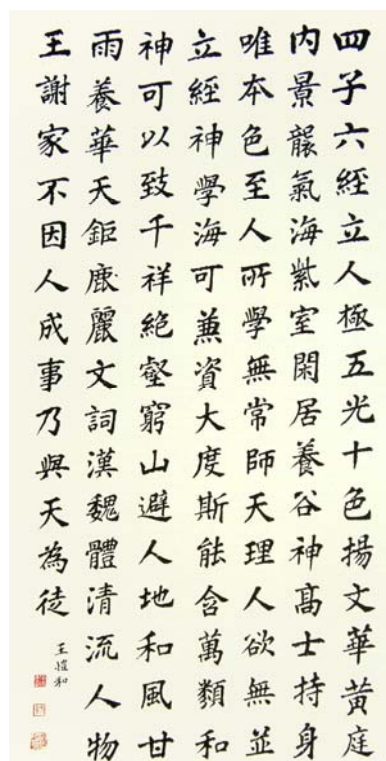 四子六經立人極五光十色揚文華黃庭
內景襲氣海紫室閑居養谷神高士持身
唯本色至人所學無常師天理人欲無並
立經神學海可兼資大度斯能含萬類和
神可以致千祥絕壑窮山避人地和風甘
雨養華天鉅鹿麗文詞漢魏體清流人物
王謝家不因人成事乃與天為徒
王愷和